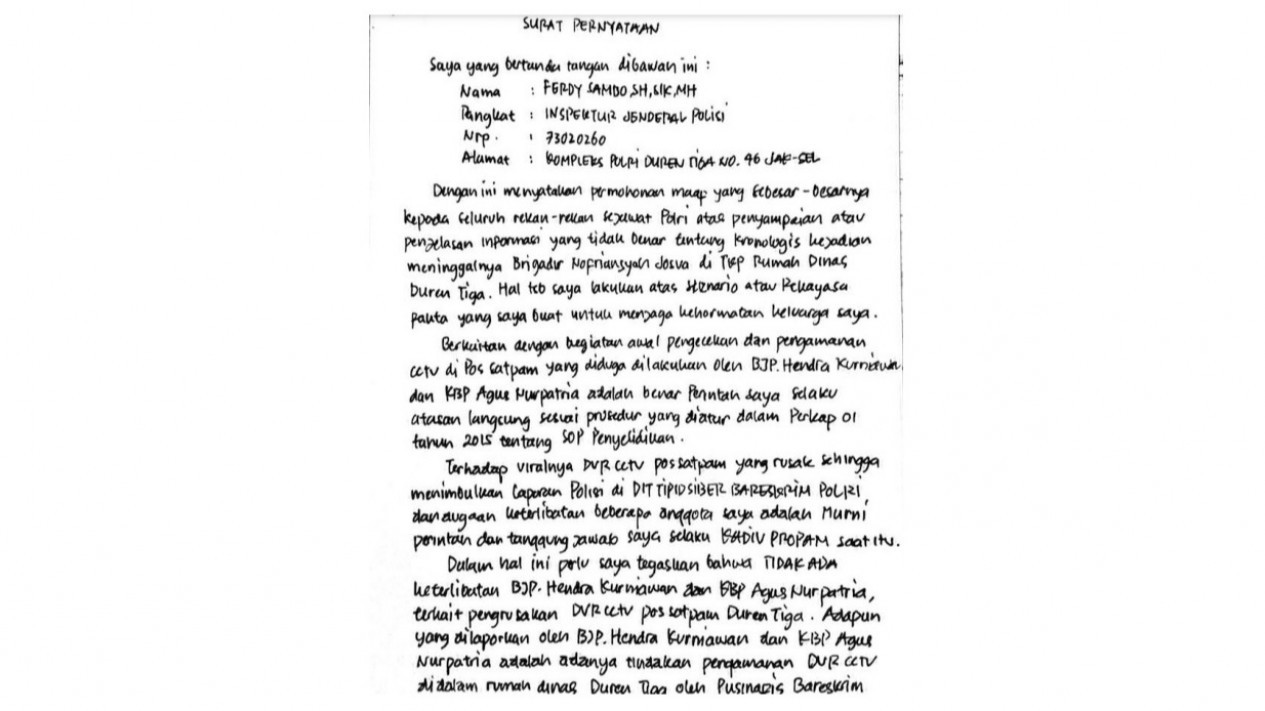 SURAT PERNYATAAN
Saya yang bertanda tangan dibawah ini :
Nama : FERDY SAMBO, SH, SIK, MH
Pangkat : INSPEKTUR JENDERAL POLISI
Nrp. : 73020260
Alamat : KOMPLEKS POLRI DUREN TIGA NO. 46 JAK-SEL
Dengan ini menyatakan permohonan maap yang sebesar-besarnya
kepada seluruh rekan-rekan sejawat Polri atas penyampaian atau
penjelasan informasi yang tidak benar tentang kronologis kejadian
meninggalnya Brigadir Nofriansyah Josua di TKP Rumah Dinas
Duren Tiga. Hal tsb saya lakukan atas skenario atau Rekayasa
fakta yang saya buat untuk menjaga kehormatan keluarga saya.
Berkaitan dengan kegiatan awal pengecekan dan pengamanan
CCTV di Pos satpam yang diduga dilakukan oleh BJP. Hendra Kurniawan
dan KBP Agus Nurpatria adalah benar Perintah saya selaku
atasan langsung sesuai prosedur yang diatur dalam Perkap 01
tahun 2015 tentang SOP Penyelidikan.
Terhadap viralnya DVR CCTV pos satpam yang rusak sehingga
menimbulkan Laporan Polisi di DIT TIPIDSIBER BARESKRIM POLRI,
dan dugaan keterlibatan beberapa anggota saya adalah Murni
perintah dan tanggung jawab saya selaku KADIV PROPAM saat itu.
Dalam hal ini perlu saya tegaskan bahwa TIDAK ADA
keterlibatan BJP. Hendra Kurniawan dan KBP Agus Nurpatria,
terkait pengrusakan DVR CCTV pos satpam Duren Tiga. Adapun
yang dilaporkan oleh BJP. Hendra Kurniawan dan KBP Agus
Nurpatria adalah adanya tindakan pengamanan DVR CCTV
didalam rumah dinas Duren Tiga oleh Pusinafis Bareskrim